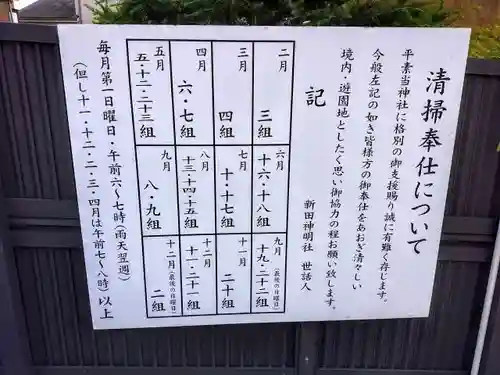 清掃奉仕について
平素当神社に格別の御支援賜り誠に有難く存じます。
今般左記の如き皆様方の御奉仕をあおぎ清々しい
境内・遊園地としたく思い御協力の程お願い致します。
新田神明社 世話人
記
二月 三組
三月 四組
四月 六・七組
五月 五・十二・二十三組
六月 十六・十八組
七月 十・十七組
八月 十三・十四・十五組
九月 八・九組
九月(最後の日曜日) 十九・二十二組
十一月 二十組
十二月 十一・二十一組
十二月(最後の日曜日) 二組
毎月第一日曜日・午前六〜七時(雨天翌週)
(但し十一・十二・二・三・四月は午前七〜八時)以上